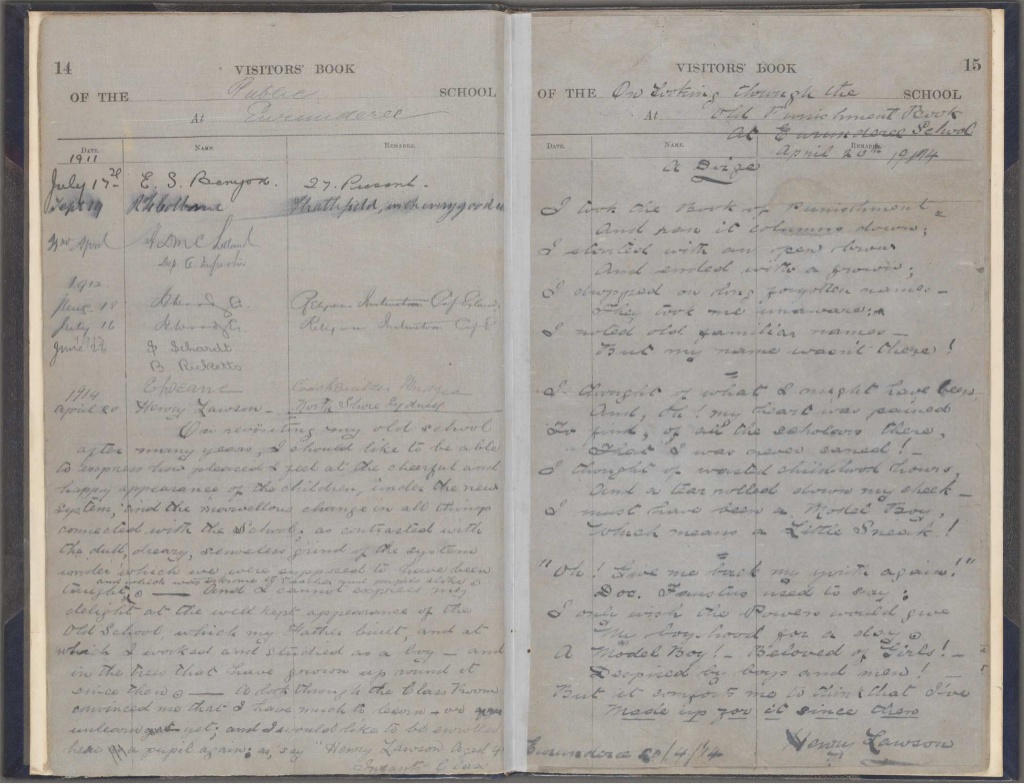 14
VISITORS' BOOK
OF THE Public SCHOOL
At Eurunderee
DATE. NAME. REMARKS.
1911
July 17th E. S. Benyon. 27. Present.
Sept 19 Strathfield, with every good
April
1912
Aug. 18 Religious Instruction
July 16 Religious Instruction
June J Schardt
B. Ricketts
1914
April 20 Henry Lawson - North Shore Sydney
On revisiting my old school
after many years, I should like to be able
to express how pleased I feel at the cheerful and
happy appearance of the children, under the new
system, and the marvellous change in all things
connected with the School, as contrasted with
the dull, dreary, senseless grind of the system
under which we were supposed to have been
and which was of teacher and pupils alike
taught. — And I cannot express my
delight at the well kept appearance of the
Old School, which my Father built, and at
which I worked and studied as a boy — and
in the trees that have grown up round it
since then. — A look through the Class Room
convinced me that I have much to learn — or
unlearn yet; and I would like to be enrolled
here as a pupil again: as, say "Henry Lawson Aged 4
Infants Class
VISITORS' BOOK 15
OF THE On looking through the SCHOOL
At Old Punishment Book
At Eurunderee School
DATE. NAME. REMARKS.
April 20th 1914
A Dirge
I took the Book of Punishment
And ran it columns down;
I started with an open brow
And ended with a frown;
I dropped on long forgotten names —
They took me unaware;
I noted old familiar names —
But my name wasn't there!
I thought of what I might have been,
And, Oh! my heart was pained
To find, of all the scholars there,
That I was never caned! —
I thought of wasted childhood hours,
And a tear rolled down my cheek —
I must have been a Model Boy,
Which means a Little Sneak!
"Oh! Give me back my youth again!"
Doc. Faustus used to say;
I only wish the Powers would give
Me boyhood for a day.
A Model Boy! — Beloved of Girls! —
Despised by boys and men!
But it comforts me to think that I've
Made up for it since then
Henry Lawson
Eurunderee 20/4/14